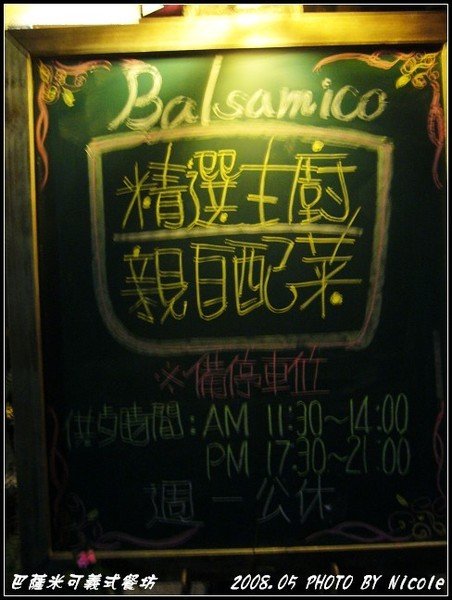 Balsamico
精選主廚
親自配菜
※備停車位
供點時間：AM 11:30~14:00
PM 17:30~21:00
週一公休
巴薩米可義式餐坊 2008.05 PHOTO BY Nicole